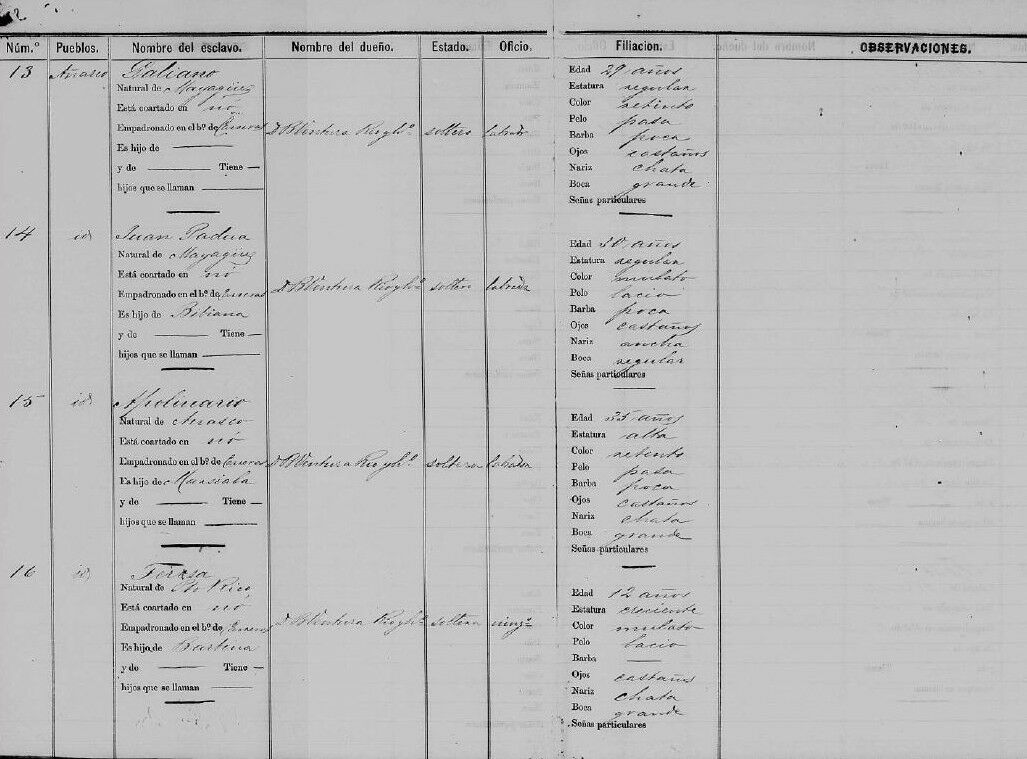 12
Núm.º Pueblos. Nombre del esclavo. Nombre del dueño. Estado. Oficio. Filiacion. OBSERVACIONES.
13 Añasco Galiano
Natural de Mayagüez
Está coartado en no
Empadronado en el bº. de
Es hijo de
y de Tiene
hijos que se llaman
D. BVentura soltero labrador
Edad 29 años
Estatura regular
Color retinto
Pelo pasa
Barba poca
Ojos castaños
Nariz chata
Boca grande
Señas particulares
14 id Juan Padua
Natural de Mayagüez
Está coartado en no
Empadronado en el bº. de
Es hijo de Bibiana
y de Tiene
hijos que se llaman
D. BVentura soltero labrador
Edad 30 años
Estatura regular
Color mulato
Pelo lacio
Barba poca
Ojos castaños
Nariz ancha
Boca regular
Señas particulares
15 id Apolinario
Natural de Añasco
Está coartado en no
Empadronado en el bº. de
Es hijo de
y de Tiene
hijos que se llaman
D. BVentura soltero labrador
Edad 35 años
Estatura alta
Color retinto
Pelo pasa
Barba poca
Ojos castaños
Nariz chata
Boca grande
Señas particulares
16 id Teresa
Natural de Pto Rico
Está coartado en no
Empadronado en el bº. de
Es hijo de
y de Tiene
hijos que se llaman
D. BVentura soltera ningº
Edad 12 años
Estatura creciente
Color mulato
Pelo lacio
Barba
Ojos castaños
Nariz chata
Boca grande
Señas particulares